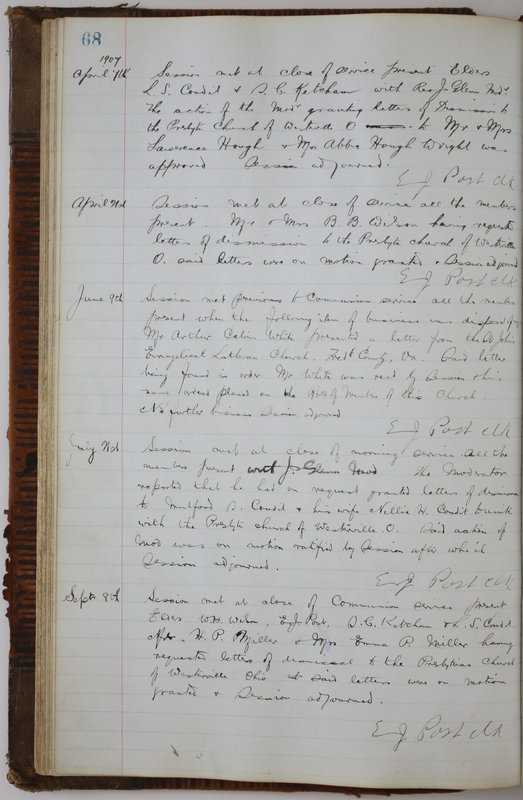 68
1907
April 7th Session met at close of service present Elders
L. S. Condit & D. C. Ketcham with Rev J. Glenn Modr
the action of the Modr granting letters of Dismission to
the Presbytr Church of Westerville O to Mr & Mrs
Lawrence Hough & Mrs Abbie Hough Wright was
approved Session adjourned.
E J Post clk
April Session met at close of service all the members
present. Mr & Mrs B. B. Wilson having requested
letters of dismission to the Presbytr church of Westerville
O. said letters were on motion granted & Session adjourned
E J Post clk
June 9th Session met previous to Communion service all the members
present when the following item of business was disposed of
Mr Arthur Calvin White presented a letter from the St Johns
Evangelical Lutheran Church, Fredk County, Va. Said letter
being found in order Mr White was recd by Session & his
name ordered placed on the Roll of Members of this Church.
No further business Session adjourned
E J Post clk
July Session met at close of morning service all the
members present with J. Glenn Mod the Moderator
reported that he had on request granted letters of dismission
to Mulford D. Condit & his wife Nellie H. Condit to unite
with the Presbytr church of Westerville. O. Said action of
Mod was on motion ratified by Session after which
Session adjourned.
E J Post clk
Sept 8th Session met at close of Communion service present
Elders W. H. Wilson, E J Post, D. C. Ketcham & L. S. Condit.
H. P. Miller & Mrs Emma P. Miller having
requested letters of dismissal to the Presbyterian Church
of Westerville Ohio said letters were on motion
granted & Session adjourned.
E J Post clk